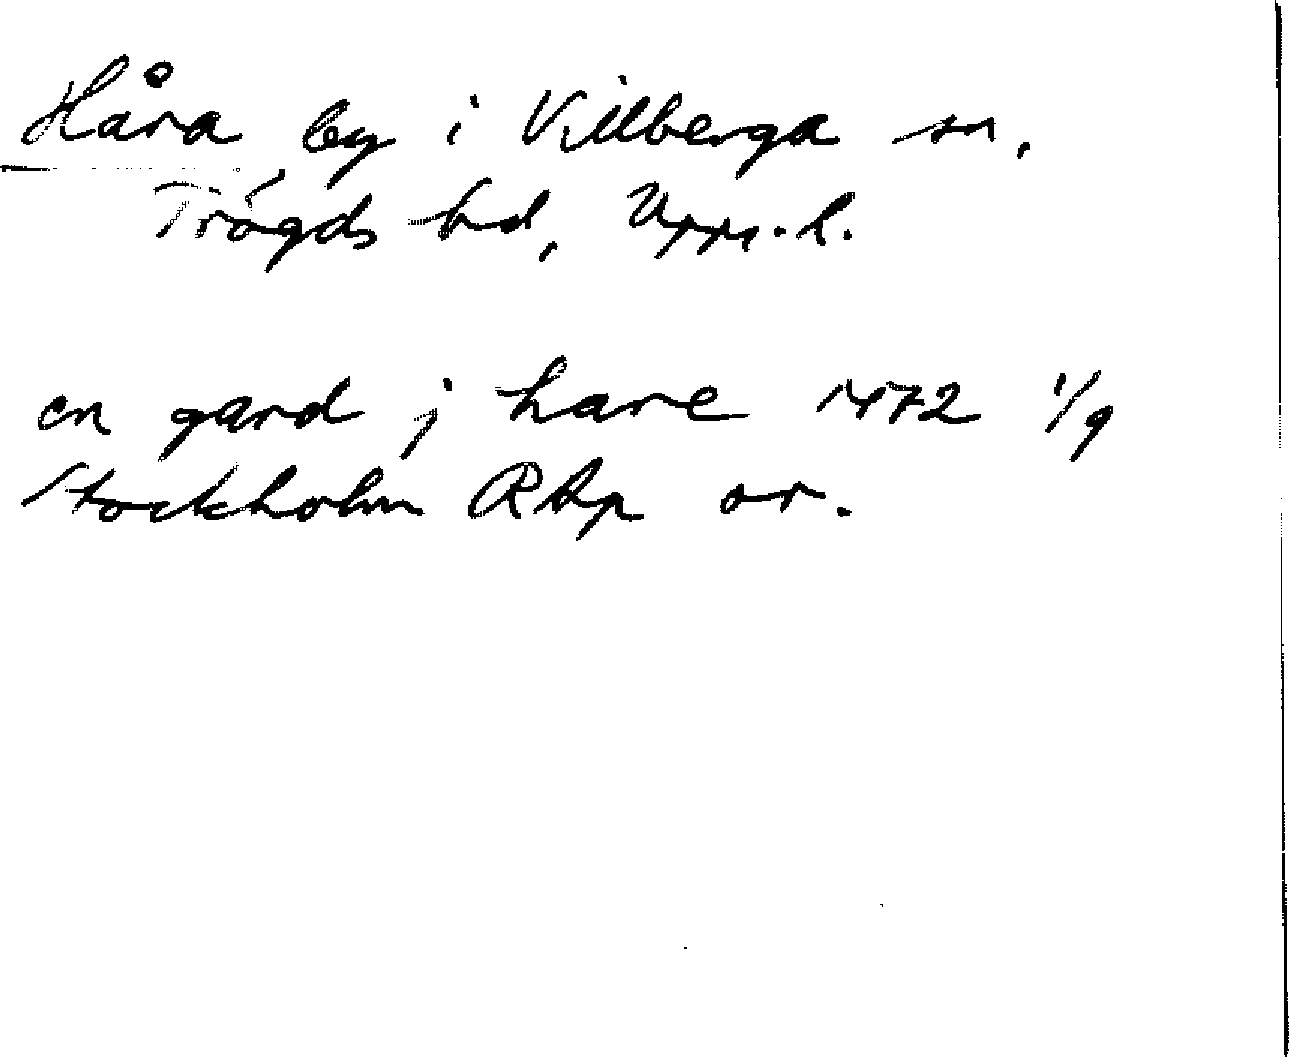 Håra by i Villberga sn,
Trögds hd, Upps. l.
en gard j hare 1472 1/9
Stockholm RAp or.